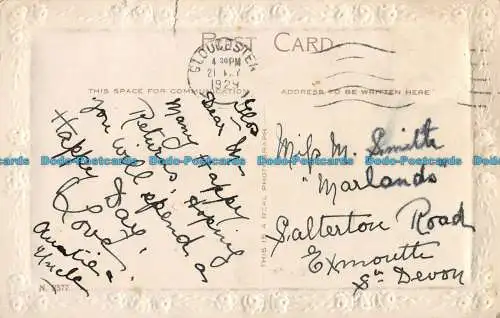 POST CARD
GLOUCESTER
1929
THIS SPACE FOR COMMUNICATION
ADDRESS TO BE WRITTEN HERE
Glos
Dear
Many Happy
Returns, Hoping
you will spend a
Happy Day,
Love,
Auntie &
Uncle
THIS IS A REAL PHOTOGRAPH
Miss M. Smith
"Marlands"
Salterton Road
Exmouth
Sth Devon
Dodo-Postcards Dodo-Postcards Dodo-Postcards Dodo-Postcards